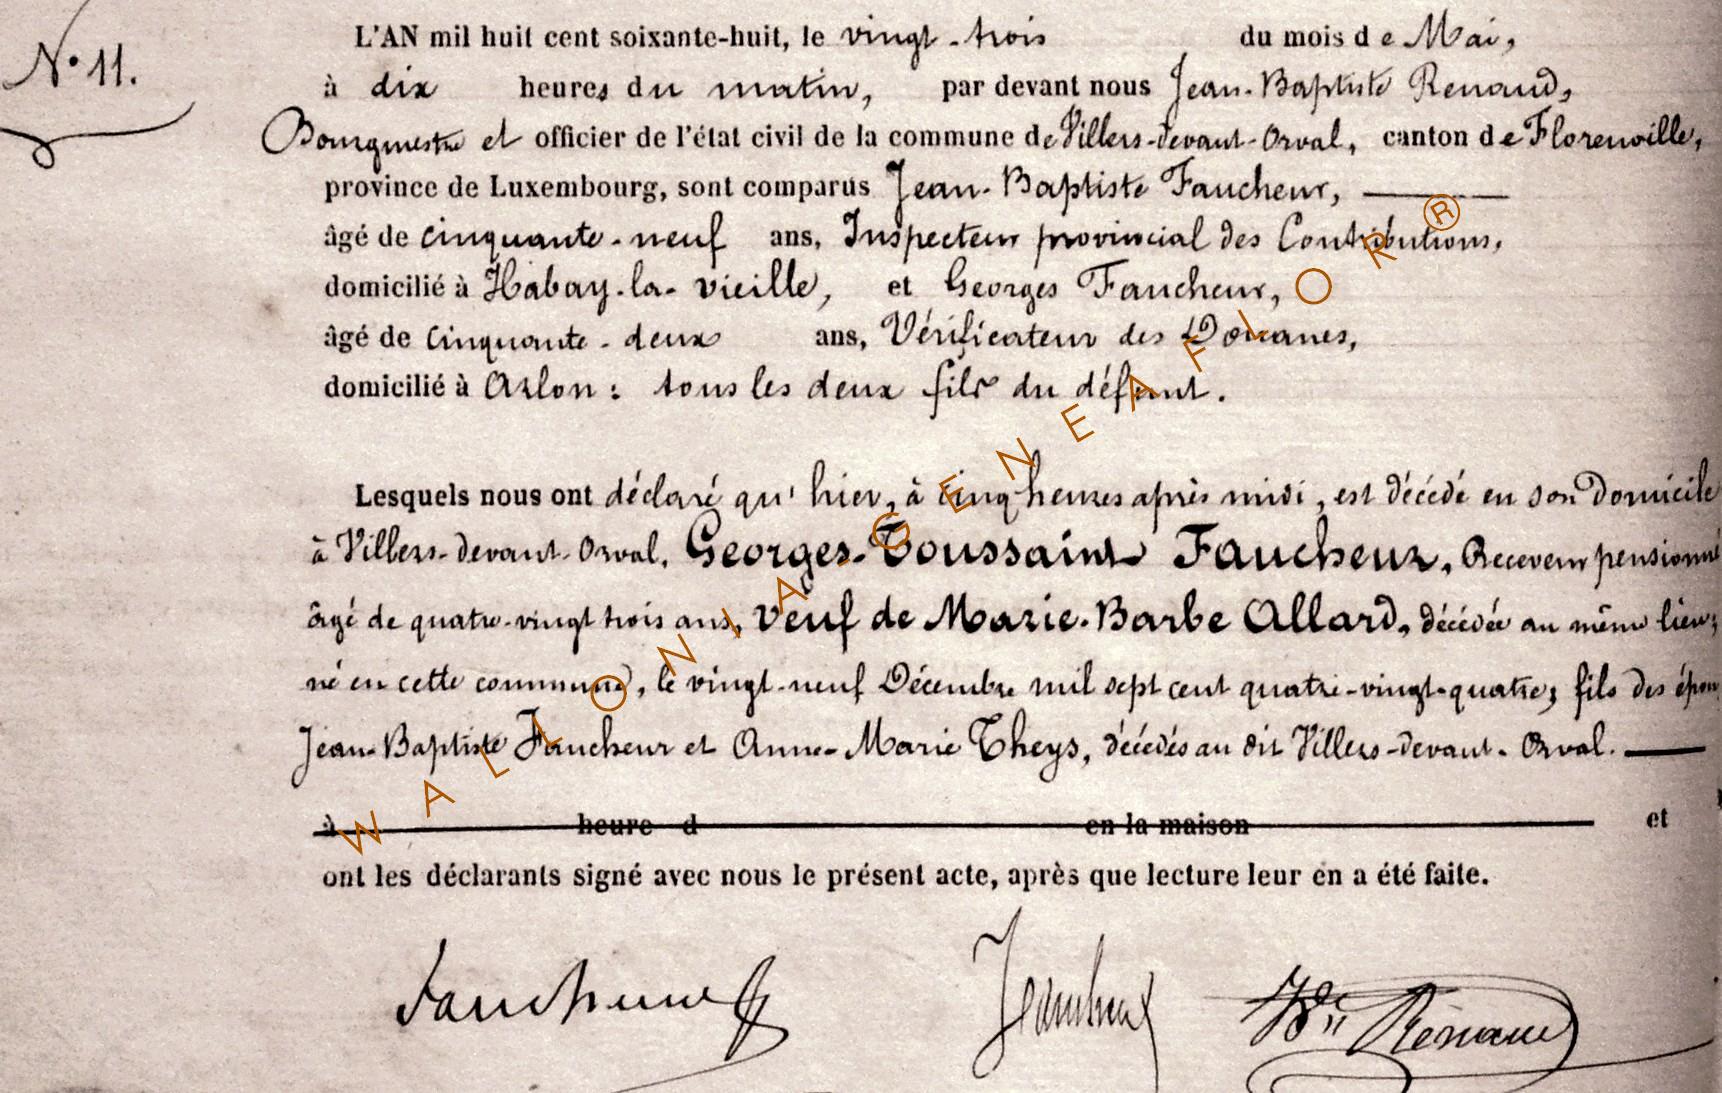 N° 11.
L'AN mil huit cent soixante-huit, le vingt-trois du mois de Mai,
à dix heures du matin, par devant nous Jean-Baptiste Renaud,
Bourgmestre et officier de l'état civil de la commune de Villers-devant-Orval, canton de Florenville,
province de Luxembourg, sont comparus Jean-Baptiste Faucheur,
âgé de cinquante-neuf ans, Inspecteur provincial des Contributions,
domicilié à Habay-la-vieille, et Georges Faucheur,
âgé de cinquante-deux ans, Vérificateur des Douanes,
domicilié à Arlon : tous les deux fils du défunt.
Lesquels nous ont déclaré qu'hier, à cinq heures après midi, est décédé en son Domicile
à Villers-devant-Orval, Georges-Toussaint Faucheur, Receveur pensionné
âgé de quatre-vingt trois ans, veuf de Marie-Barbe Allard, décédée au même lieu;
né en cette commune, le vingt-neuf Décembre mil sept cent quatre-vingt-quatre; fils des époux
Jean-Baptiste Faucheur et Anne-Marie Theys, décédés au dit Villers-devant-Orval.
à heure d en la maison et
ont les déclarants signé avec nous le présent acte, après que lecture leur en a été faite.
Faucheur Faucheur Renaud
WALLONIA-GENEAFLOR®